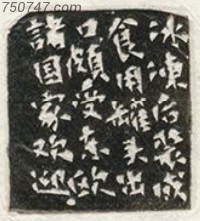 750747.com
冰凍后装成
食用罐头出
口頗受东欧
諸国家欢迎